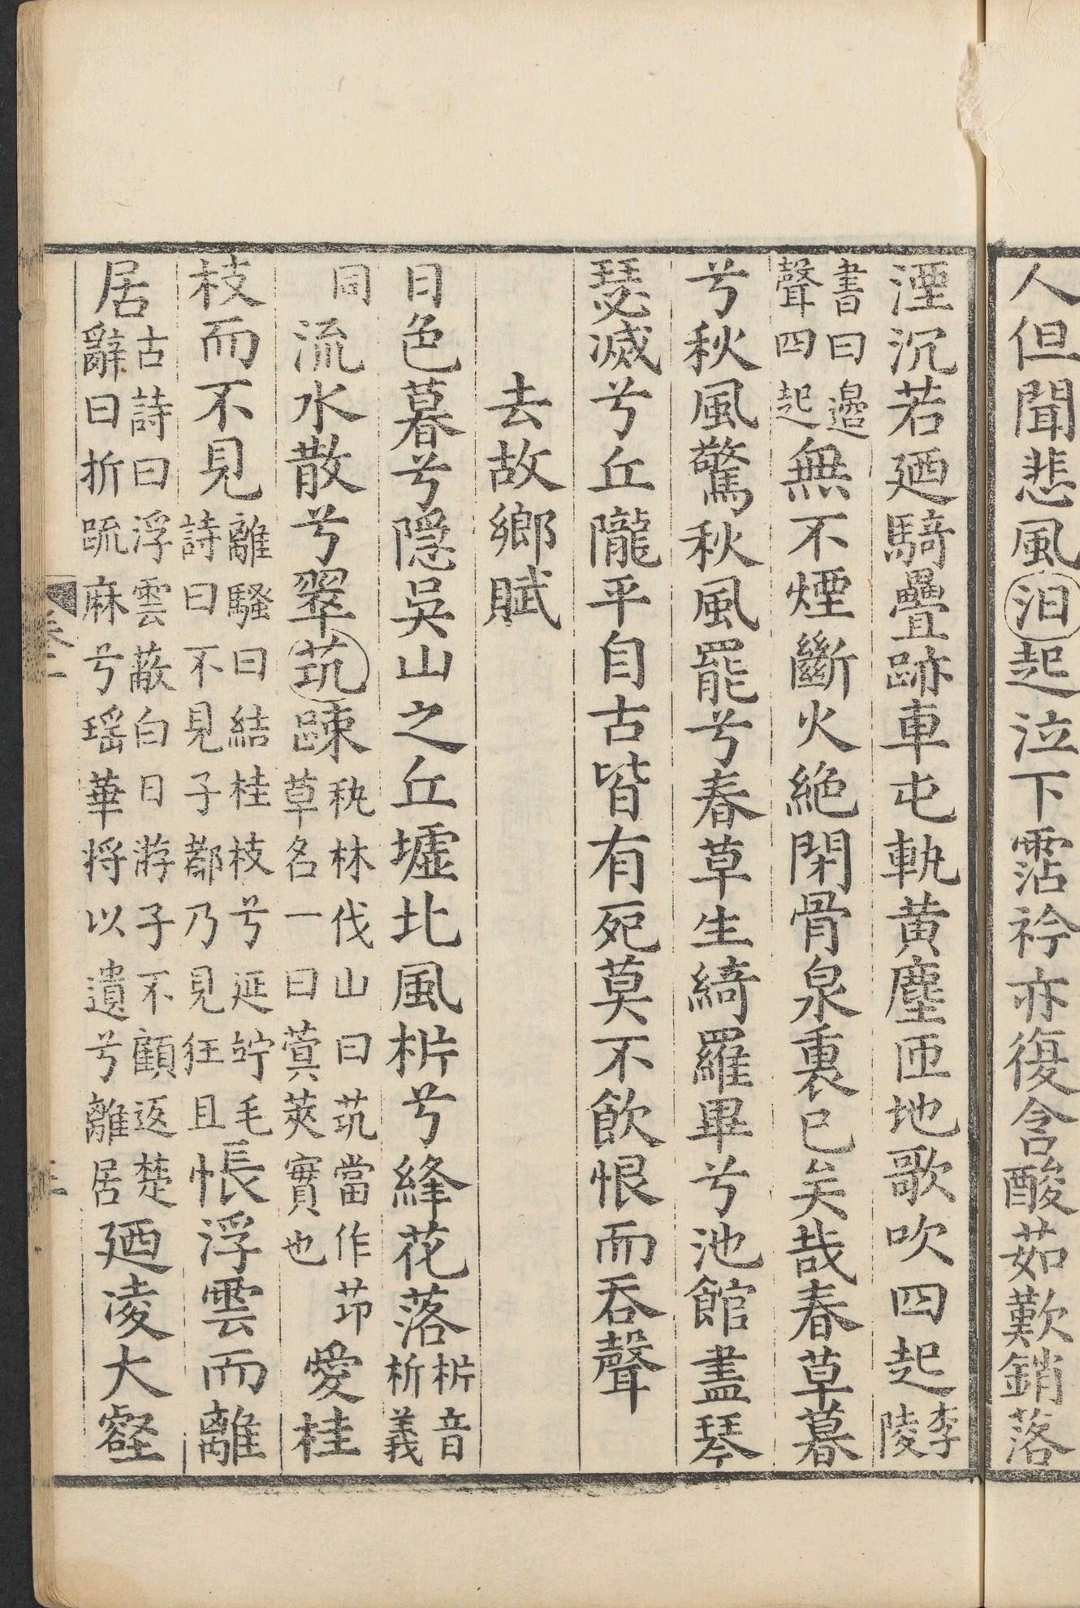 人但聞悲風汩起泣下霑衿亦復含酸茹歎銷落
湮沉若廼騎疊跡車屯軌黄塵匝地歌吹四起李陵
書曰邊聲四起無不煙斷火絶閑骨泉裏已矣哉春草暮
兮秋風驚秋風罷兮春草生綺羅畢兮池館盡琴
瑟滅兮丘隴平自古皆有死莫不飲恨而吞聲
去故鄉賦
日色暮兮隱吳山之丘墟北風㭊兮絳花落㭊音析義
同流水散兮翠茿踈秇林伐山曰茿當作茆草名一曰蓂莢實也愛桂
枝而不見離騷曰結桂枝兮延竚毛詩曰不見子都乃見狂且悵浮雲而離
居古詩曰浮雲蔽白日游子不顧返楚辭曰折䟽麻兮瑶華將以遺兮離居廼凌大壑
卷二